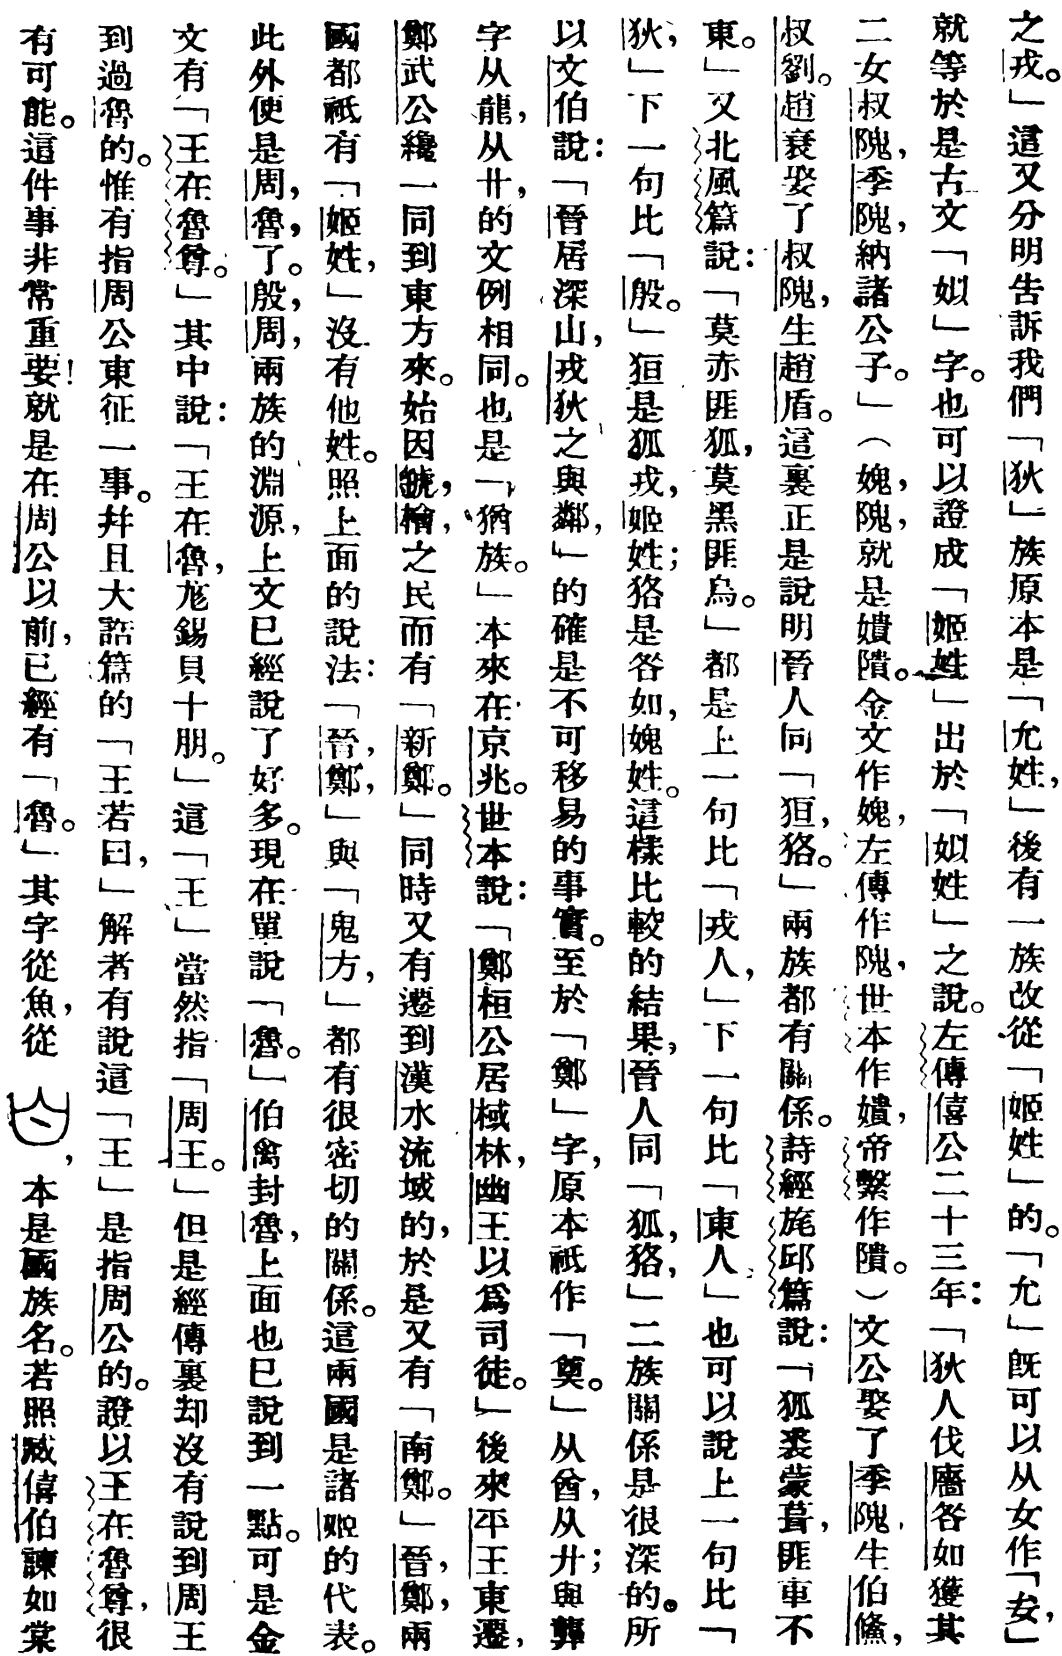 之戎。」這又分明告訴我們「狄」族原本是「允姓，」後有一族改從「姬姓」的。「允」旣可以从女作「㚶，」
就等於是古文「姒」字。也可以證成「姬姓」出於「姒姓」之說。左傳僖公二十三年：「狄人伐廧咎如獲其
二女叔隗，季隗，納諸公子。」（媿，隗，就是嬇隤。金文作媿，左傳作隗，世本作嬇，帝繫作隤。）文公娶了季隗，生伯鯈，
叔劉。趙衰娶了叔隗，生趙盾。這裏正是說明晉人同「狟，狢。」兩族都有關係。詩經旄邱篇說：「狐裘蒙葺，匪車不
東。」又北風篇說：「莫赤匪狐，莫黑匪烏。」都是上一句比「戎人，」下一句比「東人」也可以說上一句比「
狄，」下一句比「殷。」狟是狐戎，姬姓；狢是咎如，媿姓。這樣比較的結果，晉人同「狐，狢，」二族關係是很深的。所
以文伯說：「晉居深山，戎狄之與鄰，」的確是不可移易的事實。至於「鄭」字，原本祇作「奠。」从酋，从廾；與龏
字从龍，从廾，的文例相同。也是「猶族。」本來在京兆。世本說：「鄭桓公居棫林，幽王以爲司徒。」後來平王東遷，
鄭武公纔一同到東方來。始因虢，檜，之民而有「新鄭。」同時又有遷到漢水流域的，於是又有「南鄭。」晉，鄭，兩
國都祇有「姬姓，」沒有他姓。照上面的說法：「晉，鄭，」與「鬼方，」都有很密切的關係。這兩國是諸姬的代表。
此外便是周，魯，了。殷，周，兩族的淵源，上文已經說了好多。現在單說「魯。」伯禽封魯，上面也已說到一點。可是金
文有「王在魯尊。」其中說：「王在魯，尨錫貝十朋。」這「王」當然指「周王。」但是經傳裏却沒有說到周王
到過魯的。惟有指周公東征一事。幷且大誥篇的「王若曰，」解者有說這「王」是指周公的。證以王在魯尊，很
有可能。這件事非常重要！就是在周公以前，已經有「魯。」其字從魚，從，本是國族名。若照臧僖伯諫如棠